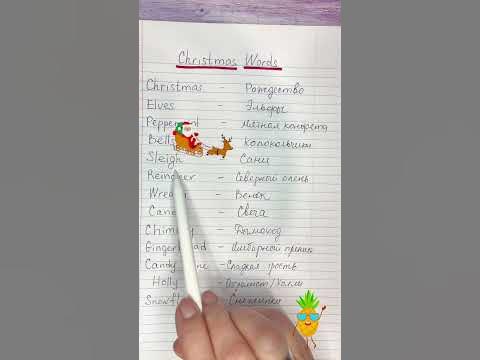 Christmas Words
Christmas - Рождество
Elves - Эльфы
Peppermint - Мятная конфета
Bells - Колокольчики
Sleigh - Сани
Reindeer - Северный олень
Wreath - Венок
- Свеча
Chimney - Дымоход
Gingerbread - Имбирный пряник
Candy Cane - Сладкая трость
Holly - Остролист/Холли
- Снежинки